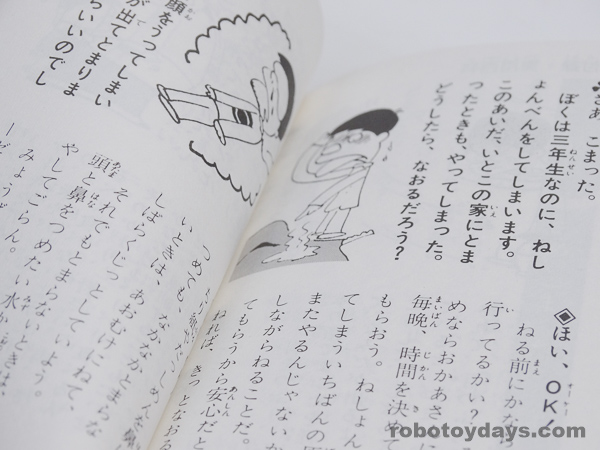 さあ、こまった。
ぼくは三年生なのに、ねし
ょんべんをしてしまいます。
このあいだ、いとこの家にとま
ったときも、やってしまった。
どうしたら、なおるだろう？
◈ほい、OK！
ねる前にかな
行ってるかい？
めならおかあさ
毎晩、時間を決めて
もらおう。ねしょん
てしまういちばんの
またやるんじゃないか
しながらねることだ。
てもらうから安心だと
ねれば、きっとなおる
顔をうってしまい
が出てとまりま
らいいのでし
つめても、
いときは、なかなかとまらな
しばらくじっとしていよう。
それでもとまらないときは、
頭と鼻をつめたい水か
やしてごらん。
みょう
robotoydays.com